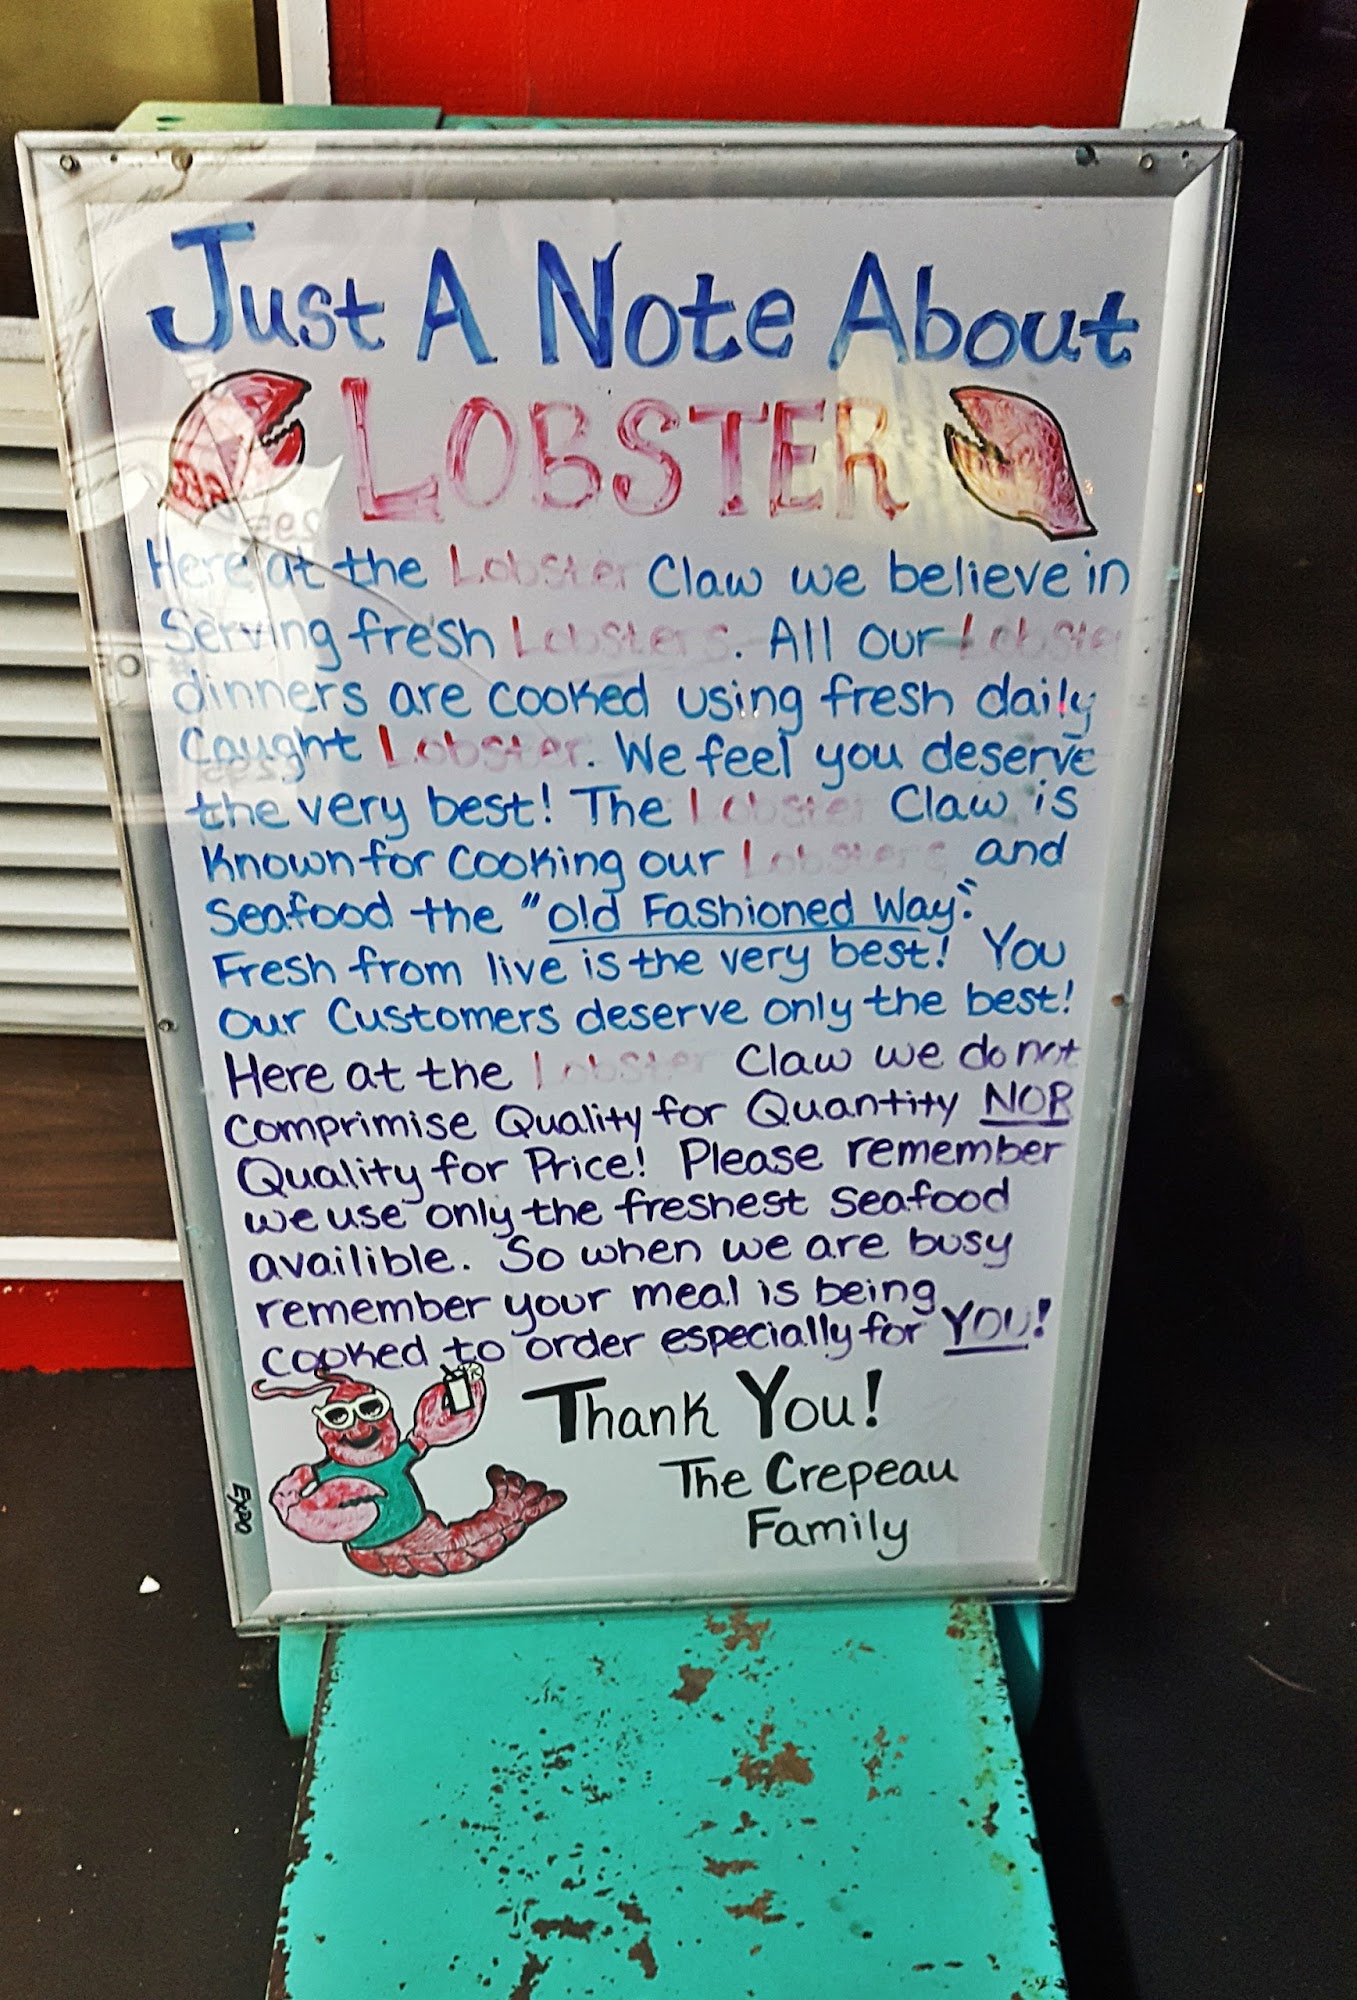 Just A Note About
LOBSTER
Here at the Lobster Claw we believe in
Serving fresh Lobsters. All our Lobster
dinners are cooked using fresh daily
Caught Lobster. We feel you deserve
the very best! The Lobster Claw is
Known for cooking our Lobsters and
Seafood the "old Fashioned Way".
Fresh from live is the very best! You
our Customers deserve only the best!
Here at the Lobster Claw we do not
Comprimise Quality for Quantity NOR
Quality for Price! Please remember
we use only the freshest Seafood
availible. So when we are busy
remember your meal is being
cooked to order especially for YOU!
Thank You!
The Crepeau
Family
EXPO